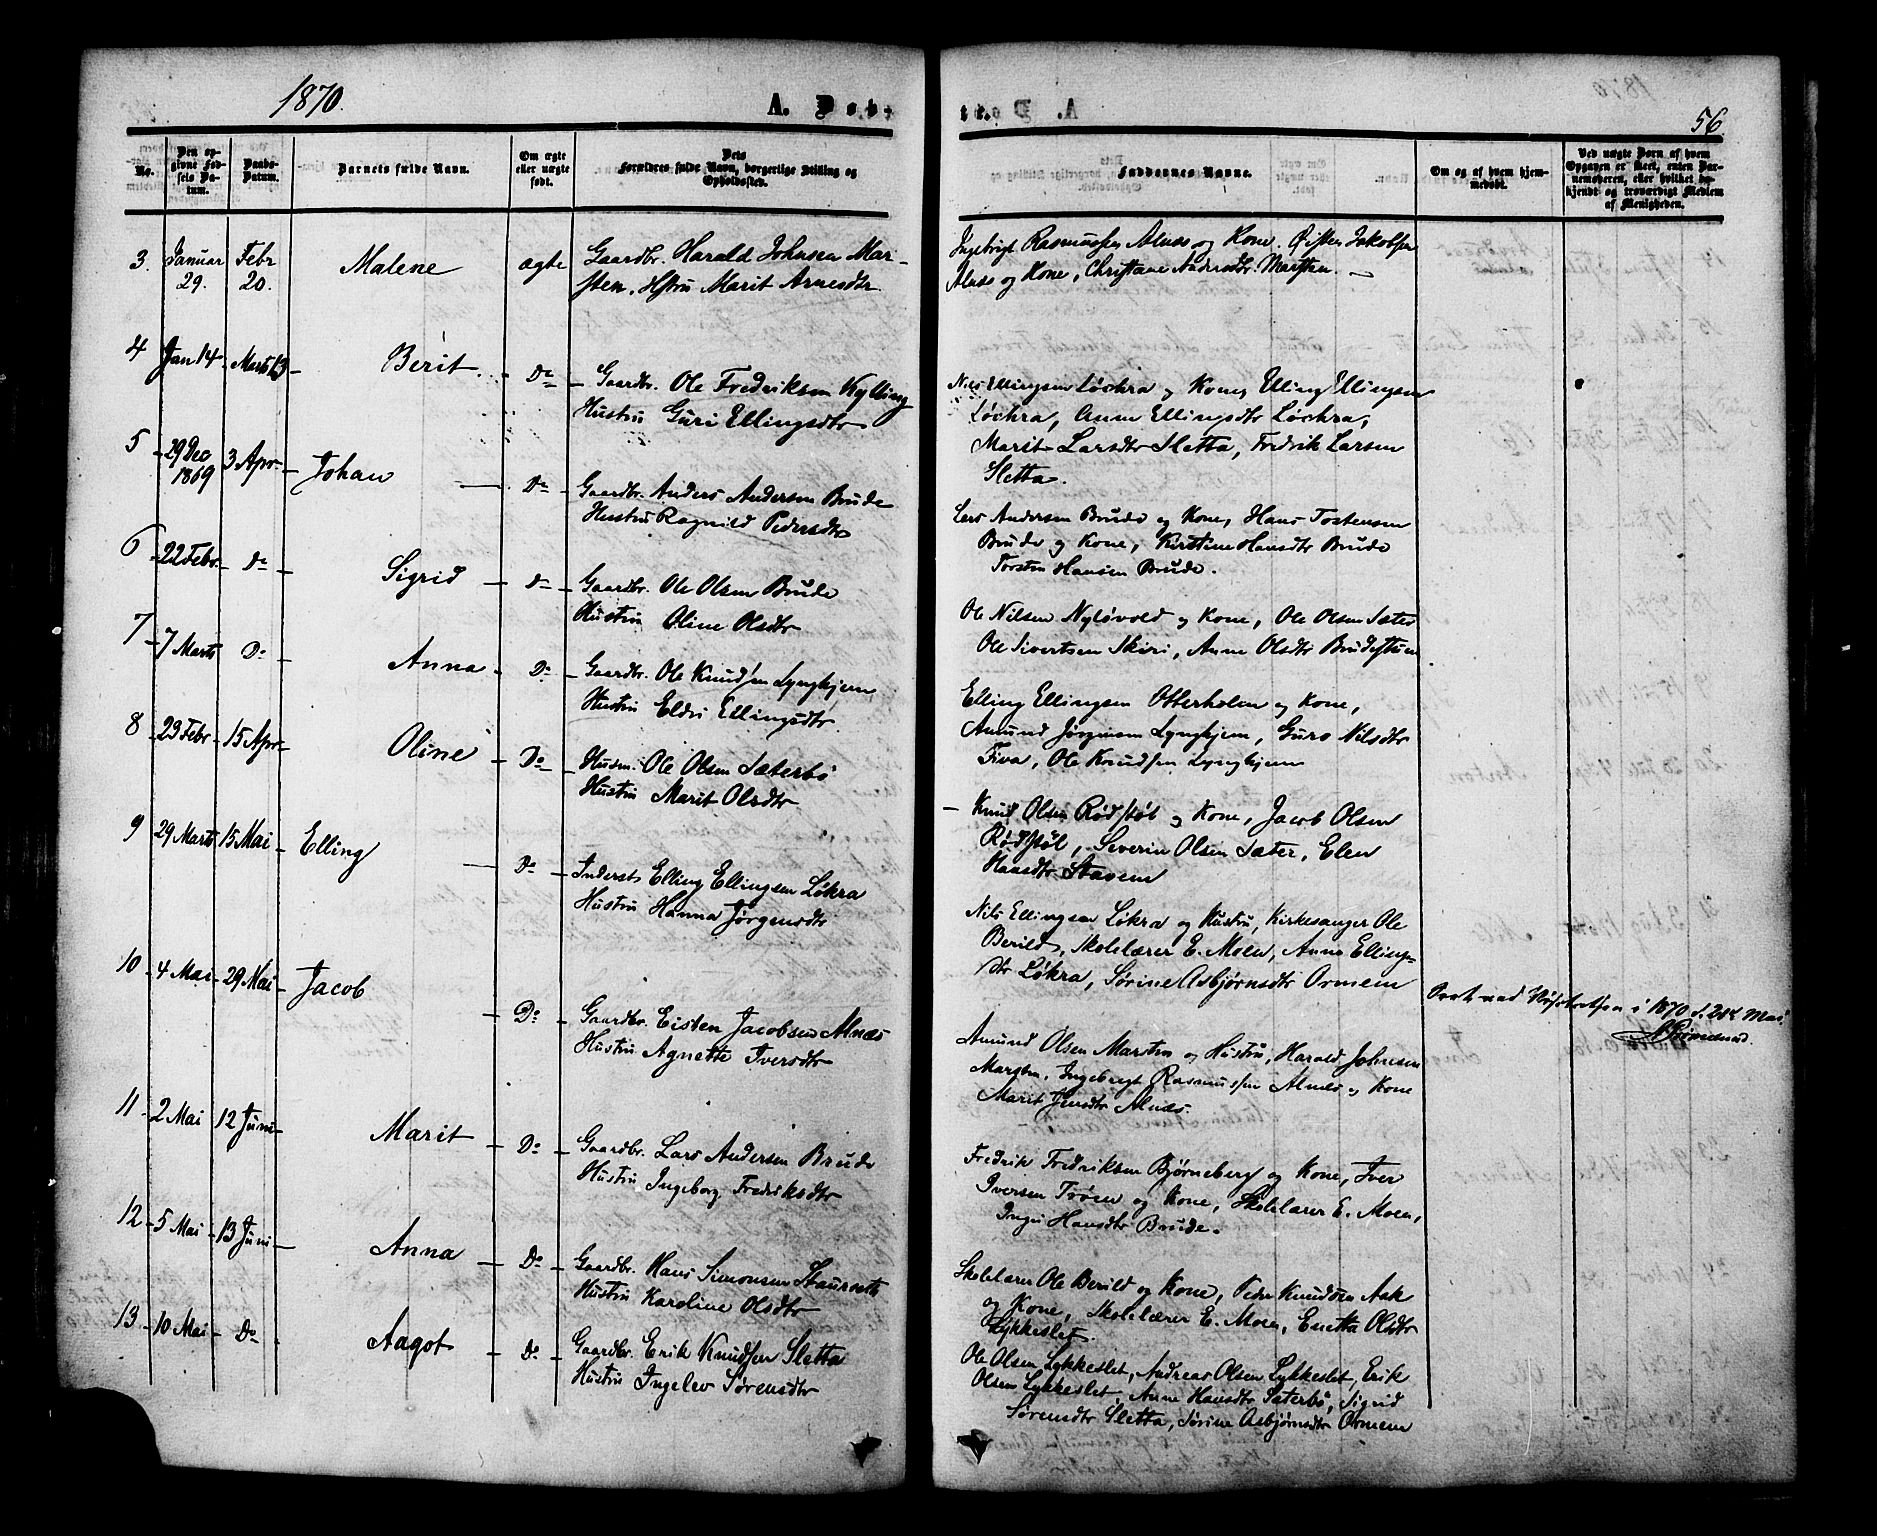 1870.
A. Døbt
56
No.
Den opgivne Fødsels Datum.
Daabs-Datum.
Barnets fulde Navn.
Om ægte eller uægte født.
Dets Forældres fulde Navn, borgerlige Stilling og Opholdssted.
Faddernes Navne.
Om og af hvem hjemmedøbt.
Ved uægte Børn af hvem Opgaven er skeet, enten Barnemoderen, eller hvilket bekjendt og troværdigt Medlem af Menigheden.
3. Januar 29. Febr 20. Malene ægte
Gaardbr. Harald Johnsen Mar-
sten, Hstru Marit Arnesdtr
Ingebrigt Rasmussen Alnæs og Kone. Øisten Jakobsen
Alnæs og Kone, Christiane Andersdtr. Marsten. —
4 Jan 14 Marts 13 Berit Do
Gaardbr. Ole Fredriksen Kylling
Hustru Guri Ellingsdtr
Nils Ellingsen Løchra og Kone, Elling Ellingsen
Løchra, Anne Ellingsdtr Løchra,
Marit Larsdtr Sletta, Fredrik Larsen
Sletta.
5 29 Dec 1869 3 Apr Johan Do
Gaardbr. Anders Andersen Brude
Hustru Ragnild Pedersdtr
Lars Andersen Brude og Kone, Hans Tostensen
Brude og Kone, Kirstine Hansdtr Brude
Torsten Hansen Brude.
6 22 Febr Do Sigrid Do
Gaardbr. Ole Olsen Brude
Hustru Oline Olsdtr
Ole Nilsen Nyløvold og Kone, Ole Olsen Sæter
Ole Sivertsen Skiri, Anne Olsdtr Brudestuen
7 7 Marts Do Anna Do
Gaardbr. Ole Knudsen Lynghjem
Hustru Eldri Ellingsdtr
Elling Ellingsen Otterholm og Kone,
Amund Jørgensen Lynghjem, Guro Nilsdtr
Fiva, Ole Knudsen Lynghjem
8 23 Febr 15 Apr Oline Do
Husm. Ole Olsen Sæterbø
Hustru Marit Olsdtr
Knud Olsen Rødstøl og Kone, Jacob Olsen
Rødstøl, Severin Olsen Sæter, Elen
Hansdtr Stavem
9 29 Marts 15 Mai Elling Do
Inderst Elling Ellingsen Løkra
Hustru Hanna Jørgensdtr
Nils Ellingsen Løkra og Hustru, Kirkesanger Ole
Berild, Skolelærer E. Moen, Anne Ellings-
dtr Løkra, Sørine Asbjørnsdtr Ormem
10 4 Mai 29 Mai Jacob Do
Gaardbr. Eisten Jacobsen Alnæs
Hustru Agnette Iversdtr
Amund Olsen Marsten og Hustru, Harald Johnsen
Marsten, Ingebrigt Rasmussen Alnæs og Kone
Marit Jensdtr Alnæs.
i 1870 d. 24 Mai.
11 2 Mai 12 Juni Marit Do
Gaardbr. Lars Andersen Brude
Hustru Ingeborg Fredriksdtr
Fredrik Fredriksen Bjørneberg og Kone, Iver
Iversen Trøen og Kone, Skolelærer E. Moen,
Ingri Hansdtr Brude.
12 5 Mai 13 Juni Anna Do
Gaardbr. Hans Simonsen Staurseth
Hustru Karoline Olsdtr
Skolelærer Ole Berild og Kone, Peder Knudsen Aak
og Kone, Skolelærer E. Moen, Enetta Olsdtr
Lykkeslet.
13 10 Mai Do Aagot Do
Gaardbr. Erik Knudsen Sletta
Hustru Ingelev Sørensdtr
Ole Olsen Lykkeslet, Andreas Olsen Lykkeslet, Erik
Olsen Lykkeslet, Anne Hansdtr Sæterbø, Sigrid
Sørensdtr Sletta, Sørine Asbjørnsdtr Ormem